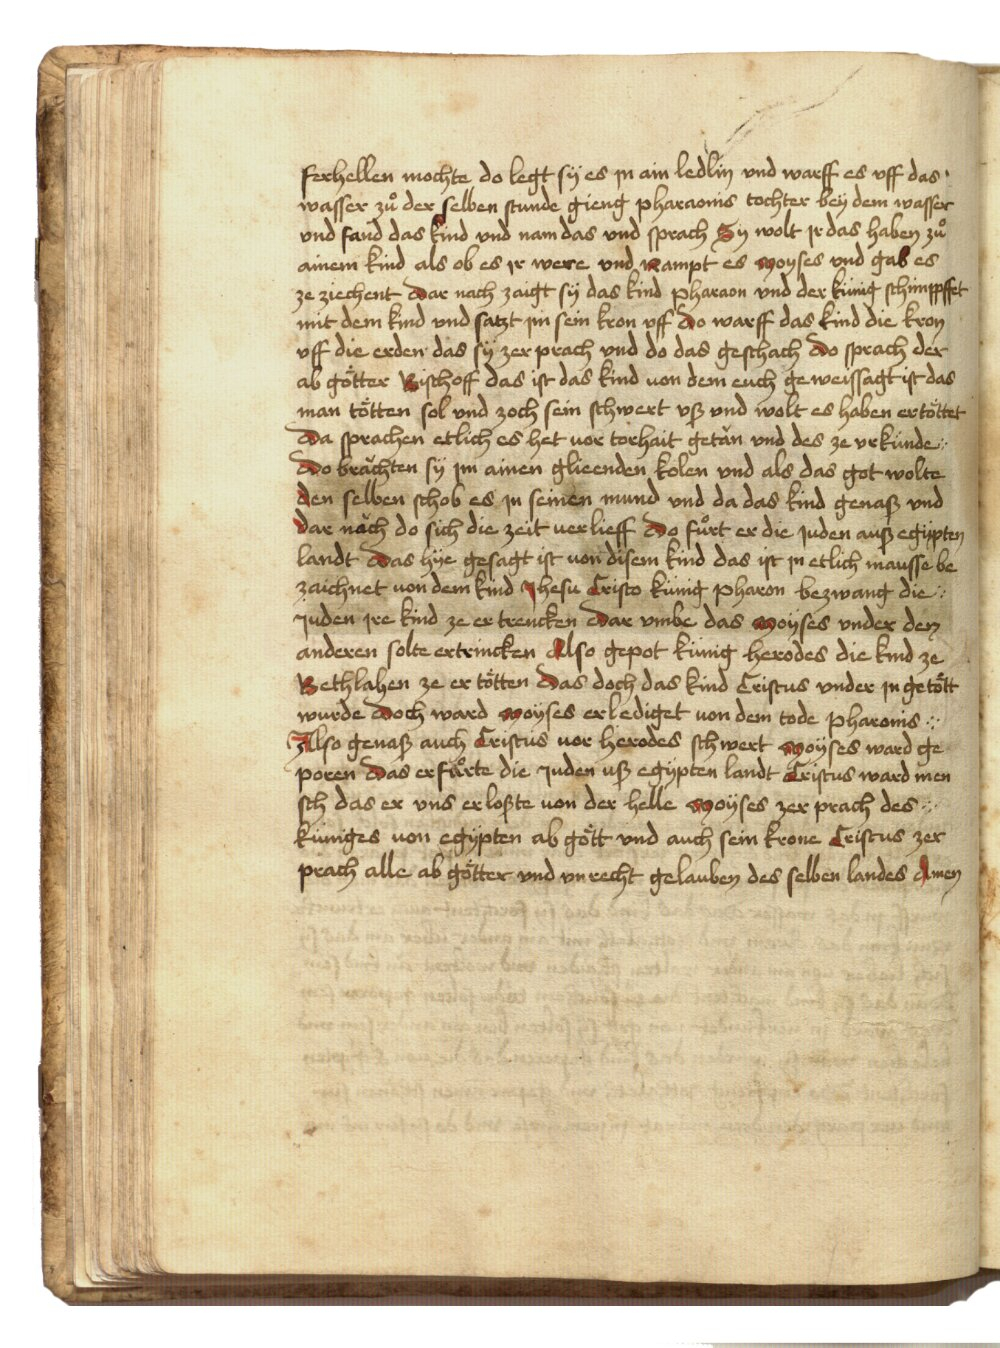 ferhellen mochte do legt sÿ es jn ain ledlin vnd warff es vff das
wasser zů der selben stunde gieng pharaonis tochter beÿ dem wasser
vnd fand das kind vnd nam das vnd sprach Sy wolt jr das haben zů
ainem kind als ob es jr were vnd Nampt es Moyses vnd gab es
ze ziechent Dar nach zaigt sÿ das kind pharaon vnd der künig schimppffet
mit dem kind vnd satzt jm sein kron vff Do warff das kind die kron
vff die erden das sÿ zer prach vnd do das geschach Do sprach der
ab götter Bischoff das ist das kind von dem euch geweissagt ist das
man tötten sol vnd zoch sein schwert vß vnd wolt es haben ertöttet
Da sprachen etlich es het vor torhait getän vnd des ze vrkünde
Do brächten sÿ jm ainen glieenden kolen vnd als das got wolte
den selben schob es jn seinen mund vnd da das kind genaß vnd
dar näch do sich die zeit verlieff Do fůrt er die juden auß egÿpten
landt Das hÿe gesagt ist von disem kind das ist jn etlich mausse be
zaichnet von dem kind Jhesu Cristo künig pharon bezwang die
juden jre kind ze ertrencken Dar vmbe das Moÿses vnder den
anderen solte ertrincken Also gepot künig herodes die kind ze
Bethlahen ze er tötten Das doch das kind Cristus vnder jn getött
wurde Doch ward Moÿses erlediget von dem tode pharonis
Also genaß auch Cristus vor herodes schwert Moÿses ward ge
poren Das er fůrte die juden uß egÿpten landt Cristus ward men
sch das er vns erloßte von der helle Moÿses zer prach des
küniges von egÿpten ab gött vnd auch sein krone Cristus zer
prach alle ab götter vnd vnrecht gelauben des selben landes Amen